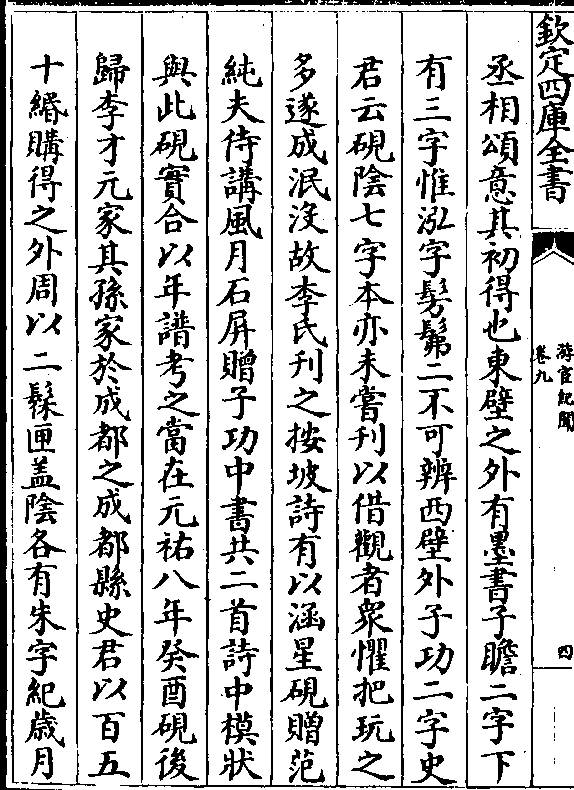 欽定四庫全書
游宦紀聞
卷九
四
丞相頌意其初得也東壁之外有墨書子瞻二字下
有三字惟泓字髣髴二不可辨西壁外子功二字史
君云硯陰七字本亦未嘗刊以借觀者衆懼把玩之
多遂成泯沒故李氏刊之按坡詩有以涵星硯贈范
純夫侍講風月石屏贈子功中書共二首詩中模狀
與此硯實合以年譜考之當在元祐八年癸酉硯後
歸李才元家其孫家於成都之成都縣史君以百五
十緡購得之外周以二髹匣盖陰各有朱字紀歳月